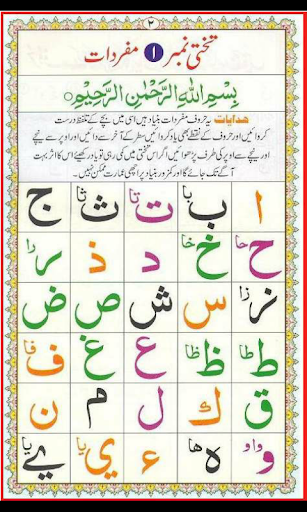 ۲
تختی نمبر ۱ مفردات
بِسْمِ اللّٰهِ الرَّحْمٰنِ الرَّحِيْمِ
هدایات یہ حروف مفردات بنیاد ہیں اس میں بچے کے تلفظ درست
کروائیں اور حروف کے نقطے بھی یاد کروائیں سطر کے آخر سے دائیں اور اوپر سے نیچے
اور نیچے سے اوپر کی طرف پڑھوائیں اگر اس تختی میں کمی رہی تو یاد رکھیئے کہ اس کا اثر بہت
آگے تک جائے گا اور کمزور بنیاد پر اچھی عمارت ممکن نہیں۔
ا ب با ت تا ث ثا ج
ح حا خ خا د ذ ر را
ز زا س ش ص ض
ط طا ظ ظا ع غ ف فا
ق ك ل م ن
و واو ه ها ء ي يا ے يا